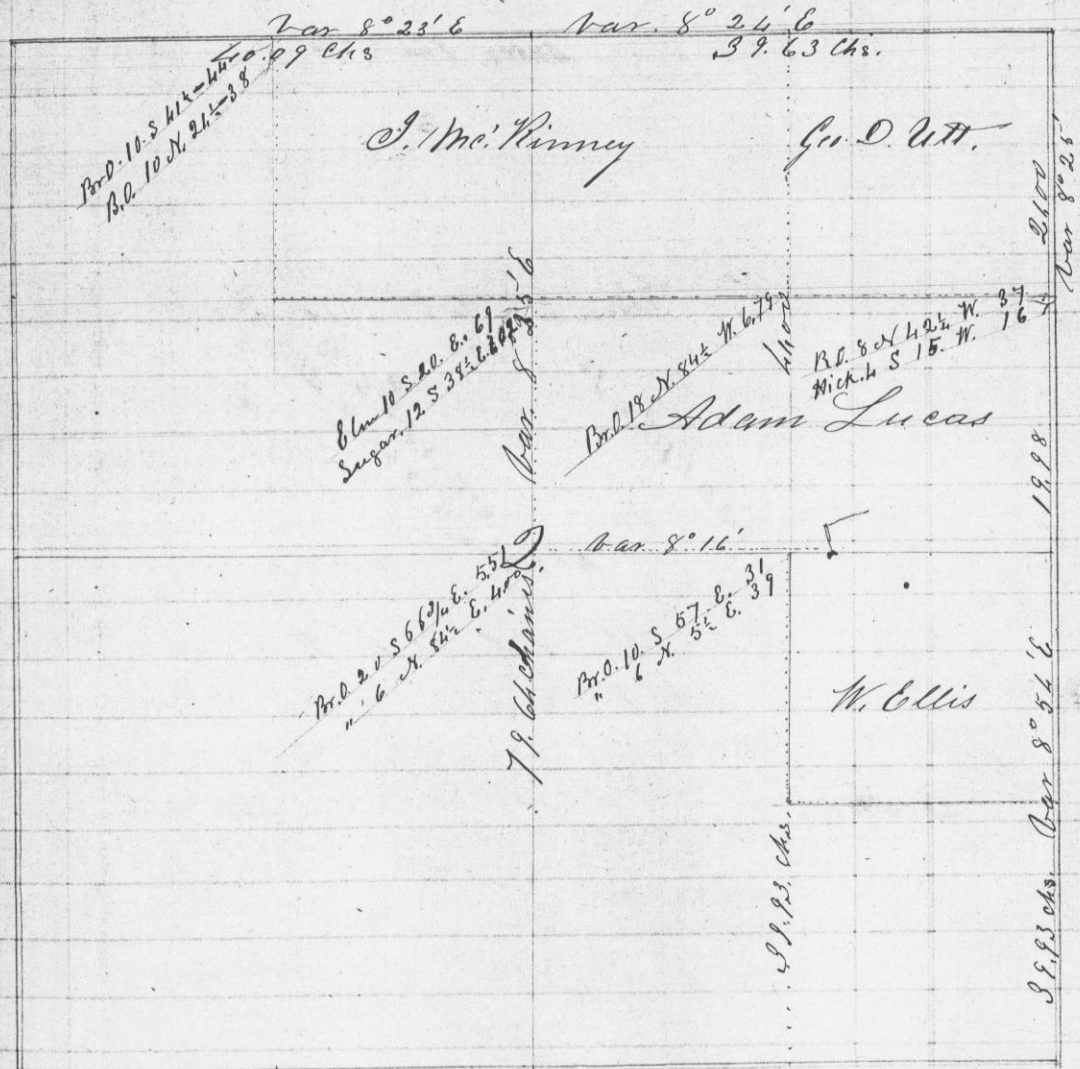 Var 8° 23' E
Var. 8° 24' E
40.09 Chs
39.63 Chs.
Br.O. 10. S 41½ - 44
B.O. 10 N. 24½ - 38
J. Mc. Kinney
Geo. D. Utt.
2400
Var 8° 25'
Elm 10 S. 20. E. 69
Sugar. 12. S 38½ E.
Var. 8 35' E
Br.O. 18 N. 84½ W. 6.79
R.O. 8 N 42½ W. 37
Hick. 4 S 15. W. 16
Adam Lucas
19.98
2
Var 8° 16'
Br.O. 20 S 66¾ E. 5.51
" 6 N. 54½ E. 4.00
Br.O. 10. S 57. E. 31
" 6 N. 5½ E. 39
79.64 chains
W. Ellis
39.93 chs.
39.93 chs. Var 8° 54' E